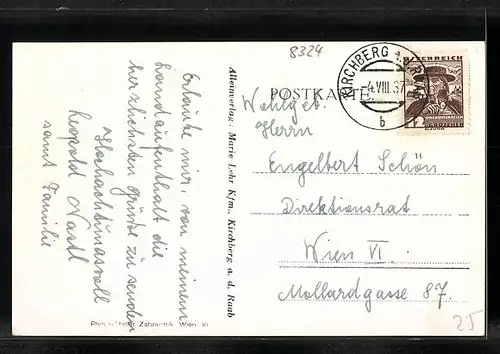 8324
KIRCHBERG
4.VIII.37
b
ÖSTERREICH
12
POSTKARTE
Erlaube mir, von meinem
Landaufenthalt die
herzlichsten Grüße zu senden
Hochachtungsvoll
Leopold Nastl
samt Familie
Alleinverlag: Marie Lehr Kfm., Kirchberg a. d. Raab
Wohlgeb.
Herrn
Engelbert Schön
Direktionsrat
Wien VI.
Mollardgasse 87.
Wien VI
25